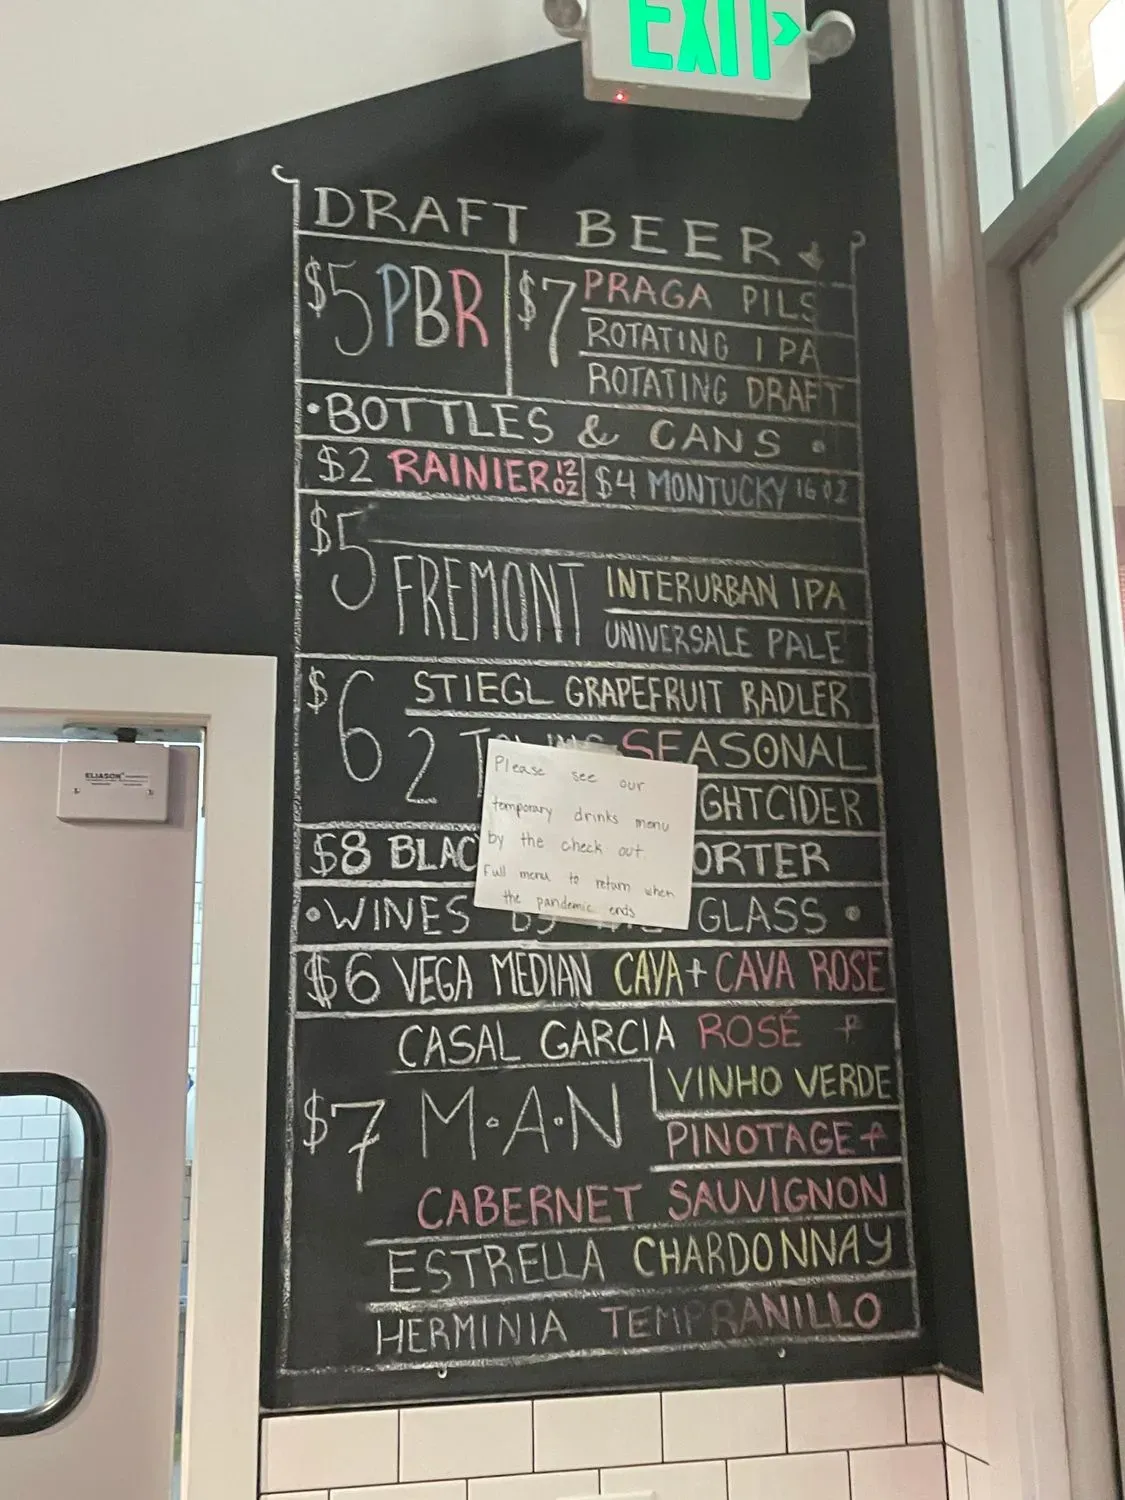 EXIT
DRAFT BEER
$5 PBR
$7 PRAGA PILS
ROTATING IPA
ROTATING DRAFT
• BOTTLES & CANS •
$2 RAINIER 12 OZ
$4 MONTUCKY 16 OZ
$5
FREMONT INTERURBAN IPA
UNIVERSALE PALE
$6 STIEGL GRAPEFRUIT RADLER
2 SEASONAL
GHTCIDER
$8 BLAC ORTER
Please see our
temporary drinks menu
by the check out.
Full menu to return when
the pandemic ends
• WINES BY GLASS •
$6 VEGA MEDIAN CAVA + CAVA ROSE
$7 CASAL GARCIA ROSÉ +
VINHO VERDE
M·A·N PINOTAGE +
CABERNET SAUVIGNON
ESTRELLA CHARDONNAY
HERMINIA TEMPRANILLO
ELIASON